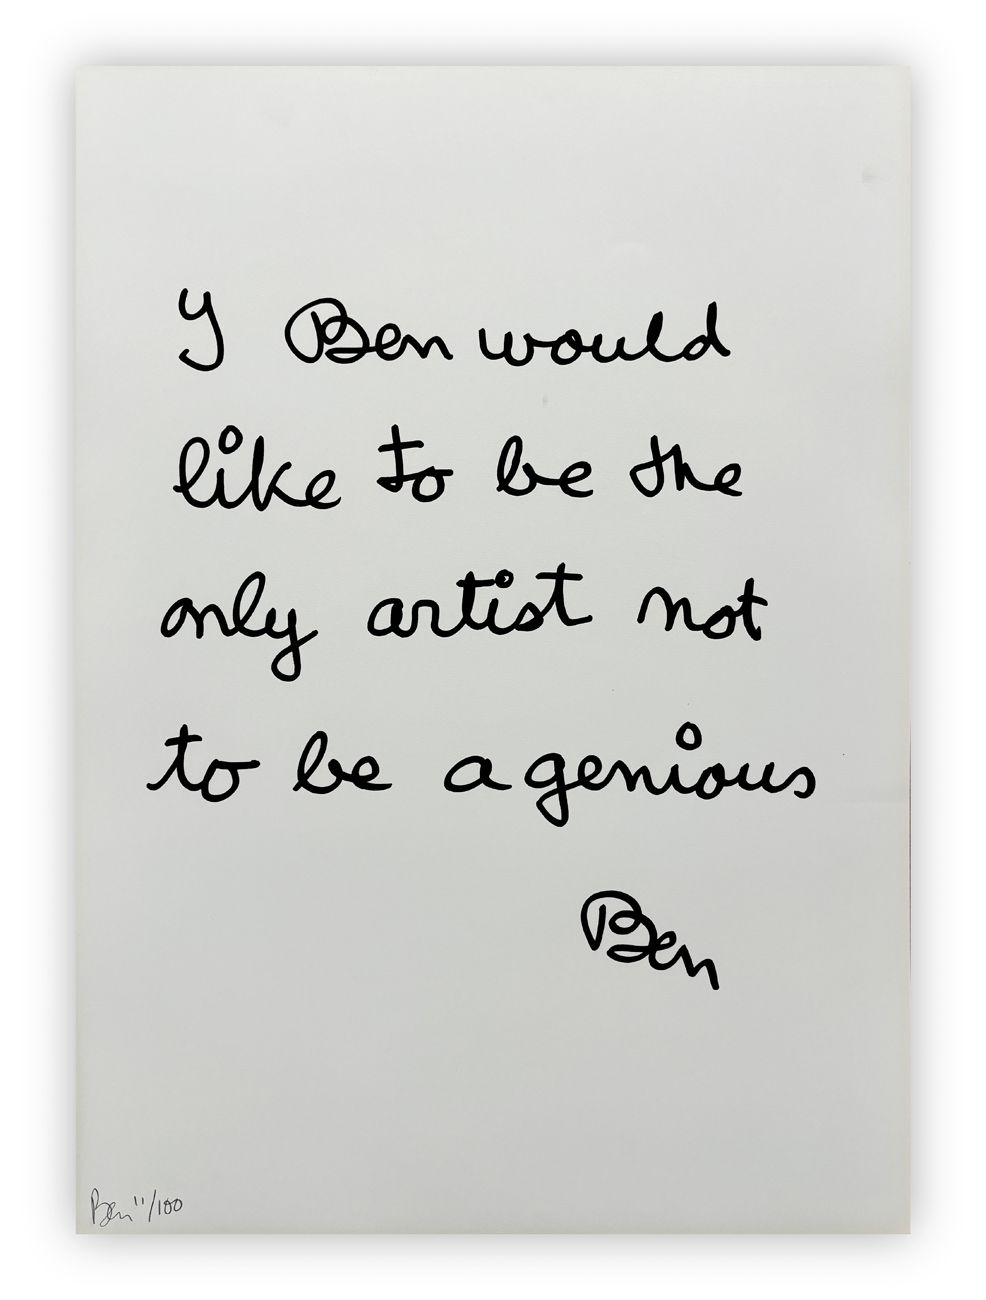 I Ben would
like to be the
only artist not
to be a genious
Ben
Ben 11/100